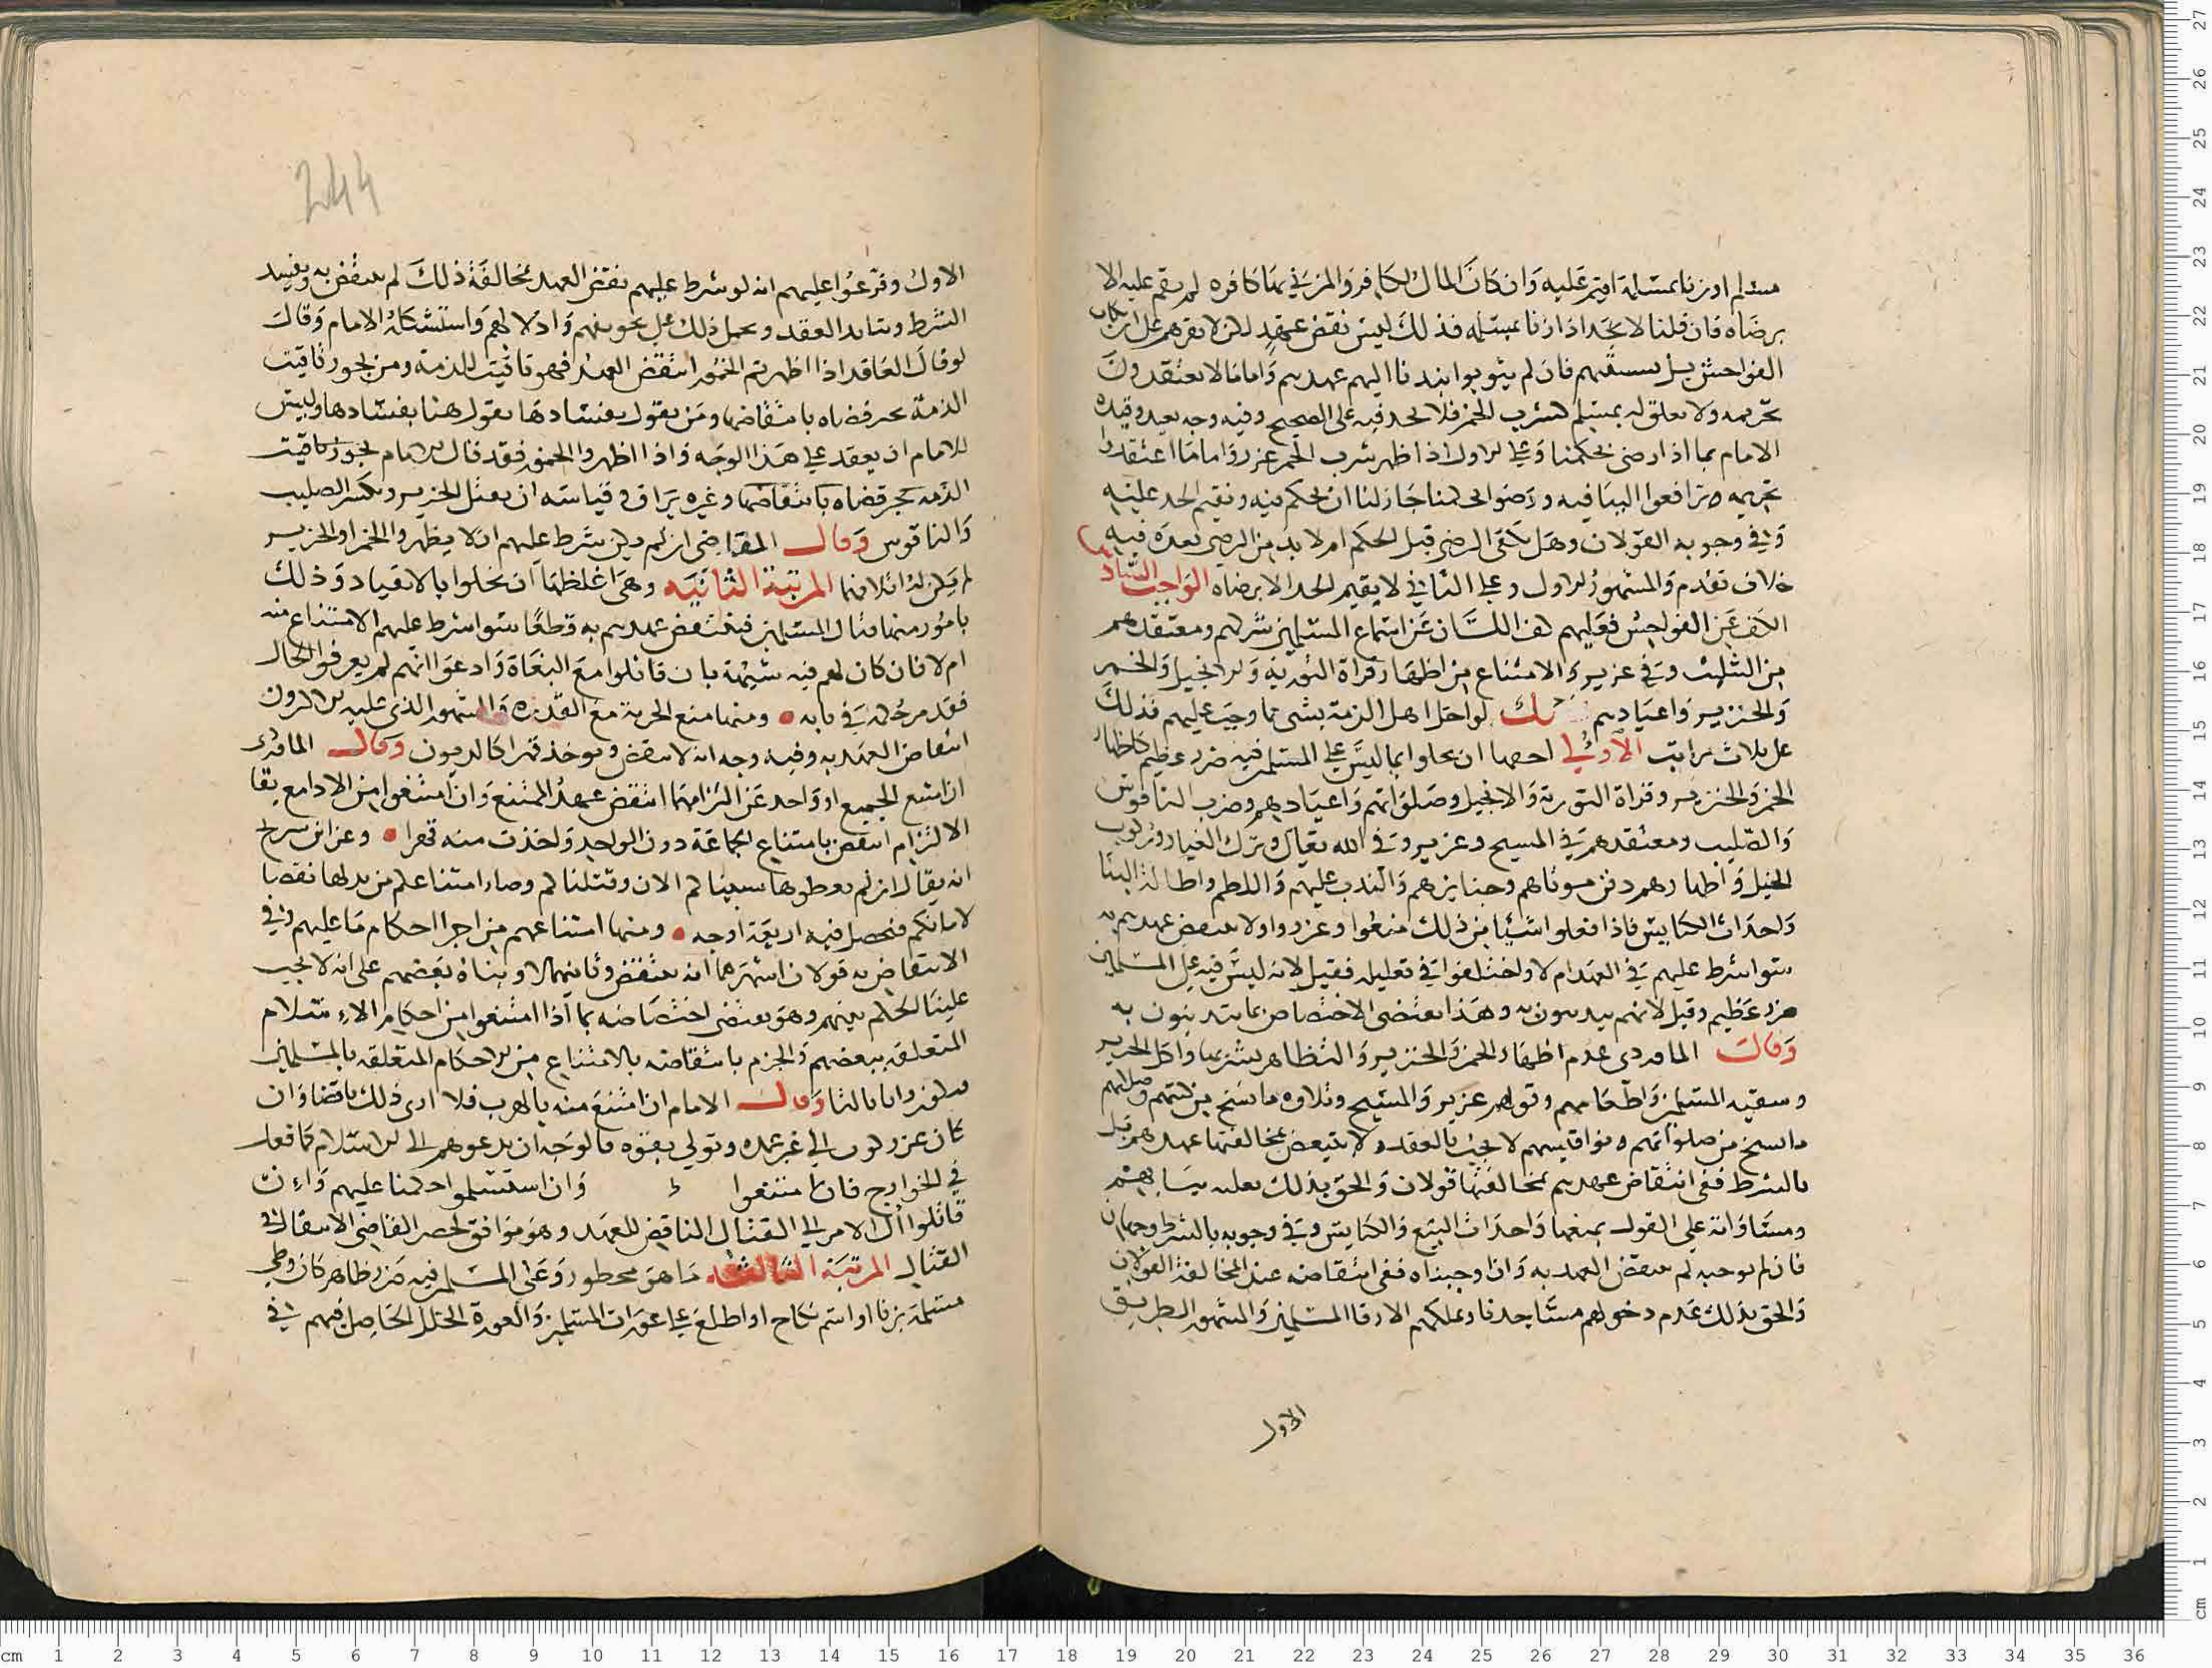 مسلم او زنا بمسلمة اقيم عليه وان كان المال لكافر والمزني بها كافره لم يقم عليه الا
برضاه فان قلنا لا يحد اذا زنا بمسلمه فذلك ليس نقض عهد لكن لا نقرهم على ارتكاب
الفواحش بل فان لم يتوبوا نبذنا اليهم عهدهم واما ما لا يعتقدون
تحريمه ولا تعلق له بمسلم كشرب الخمر فلا يحد فيه على الصحيح وفيه وجه بعيد وقيده
الامام بما اذا رضي بحكمنا وعلى الاول اذا ظهر شرب الخمر عزر واما ما اعتقدوا
تحريمه وترافعوا الينا فيه ورضوا بحكمنا جاز لنا ان نحكم فيه ونقيم الحد عليه
وفي وجوبه القولان وهل يكفي الرضى قبل الحكم ام لا بد من الرضى بعده فيه
خلاف تقدم والمشهور الاول وعلى الثاني لا يقيم الحد الا برضاه الواجب الثاني
الكف عن الفواحش فعليهم كف اللسان عن استماع المسلمين شركهم ومعتقدهم
من الثليث وفي عزير والامتناع من اظهار قراة التورية والانجيل والخمر
والخنزير واعيادهم لو اخل اهل الذمة بشي مما وجب عليهم فذلك
على ثلاث مراتب الاولى احدها ان يخلوا بما ليس على المسلمين فيه ضرر عظيم كاظهار
الخمر والخنزير وقراة التورية والانجيل وصلواتهم واعيادهم وضرب الناقوس
والصليب ومعتقدهم في المسيح وعزير وفي الله تعالى وترك الغيار وركوب
الخيل واظهارهم دفن موتاهم وجنايزهم والندب عليهم واللطم واطالة البنا
واحداث الكنايس فاذا فعلوا شيئا من ذلك منعوا وعزروا ولا ينتقض عهدهم به
سوا شرط عليهم في العهد ام لا واختلفوا في تعليله فقيل لانه ليس فيه على المسلمين
ضرر عظيم وقيل لانهم يتدينون به وهذا يقتضي الاختصاص بما يتدينون به
وقال الماوردي عدم اظهار الخمر والخنزير والتظاهر بشربها واكل الخنزير
وسقيه المسلمين واطعامهم وقولهم عزير والمسيح وتلاوه ما نسخ من كتبهم وصلاتهم
ما نسخ من صلواتهم ونواقيسهم لا يجب بالعقد ولا ينتقض بمخالفتها عهدهم قبل
بالشرط ففي انتقاض عهدهم بمخالفتها قولان والحق بذلك
ومساواته على القول بمنعها واحداث البيع والكنايس وفي وجوبه بالشرط وجهان
فان لم نوجبه لم ينتقض العهد به وان اوجبناه ففي انتقاضه عند المخالفة القولان
والحق بذلك عدم دخولهم مساجدنا وتملكهم الارقا المسلمين والمشهور الطريق
الاول
244
الاول وفرعوا عليهم انه لو شرط عليهم نقض العهد بمخالفة ذلك لم ينتقض به ويفسد
الشرط ويتابد العقد ويحمل ذلك على تخويفهم واذلالهم واستشكله الامام وقال
لو قال العاقد اذا اظهرتم الخمور انتقض العهد فهو تاقيت للذمة ومن يجوز تاقيت
الذمة يحرر قضاه بانتقاضها ومن يقول بفسادها يقول هنا بفسادها وليس
للامام ان يعقد على هذا الوجه واذا اظهروا الخمور فقد قال الامام يجوز تاقيت
الذمه بجر قضاه بانتقاضها وغيره يراق وقياسه ان يقتل الخنزير ويكسر الصليب
والناقوس وقال القاضي ان لم يكن شرط عليهم ان لا يظهروا الخمر او الخنزير
لم يكن له اتلافها المرتبة الثانيه وهي اغلظها ان يخلوا بالانقياد وذلك
بامور منها قتال المسلمين فينتقض عهدهم به قطعا سوا شرط عليهم الامتناع منه
ام لا فان كان لهم فيه شبهة بان قاتلوا مع البغاة وادعوا انهم لم يعرفوا الحال
فقد مر حكمه في بابه ومنها منع الجزية مع القدره والمشهور الذي عليه الاكثرون
انتقاض العهد به وفيه وجه انه لا ينتقض وتوخذ قهرا كالديون وقال الماوردي
ان امتنع الجميع او واحد عن التزامها انتقض عهد الممتنع وان امتنعوا من الادا مع بقا
الالتزام انتقض بامتناع الجماعة دون الواحد واخذت منه قهرا وعن ابن سريج
انه يقال ان لم تعطوها سبيناكم الان وقتلناكم وصار امتناعكم من بدلها نقضا
لامانكم فتحصل فيه اربعة اوجه ومنها امتناعهم من اجرا احكامنا عليهم وفي
الانتقاض به قولان اشهرهما انه ينتقض وثانيهما لا وبناه بعضهم على انه لا يجب
علينا الحكم بينهم وهو يقتضي اختصاصه بما اذا امتنعوا من احكام الاسلام
المتعلقه ببعضهم والجزم بانتقاضه بالامتناع من الاحكام المتعلقه بالمسلمين
وقال الامام ان امتنع منه بالهرب فلا ارى ذلك ناقضا وان
كان عن ركوب الى غير عهده وتولي بقوه فالوجه ان يدعوهم الى الاستسلام كما فعل
في الخوارج فان امتنعوا وان استسلموا حكمنا عليهم وان
قاتلوا آل الامر الى القتال الناقض للعهد وهو موافق لحصر القاضي الانتقاض في
القتال المرتبة الثالثه ما هو محظور وعلى المسلمين فيه ضرر ظاهر كان وطي
مسلمة بزنا او اسم نكاح او اطلع على عورات المسلمين والعورة الخلل الحاصل فيهم في